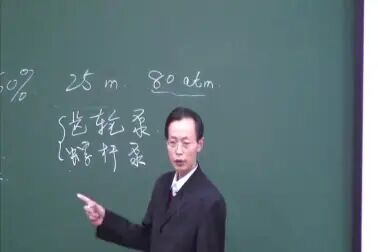 50% 25 m. 80 atm.
齿轮泵
螺杆泵